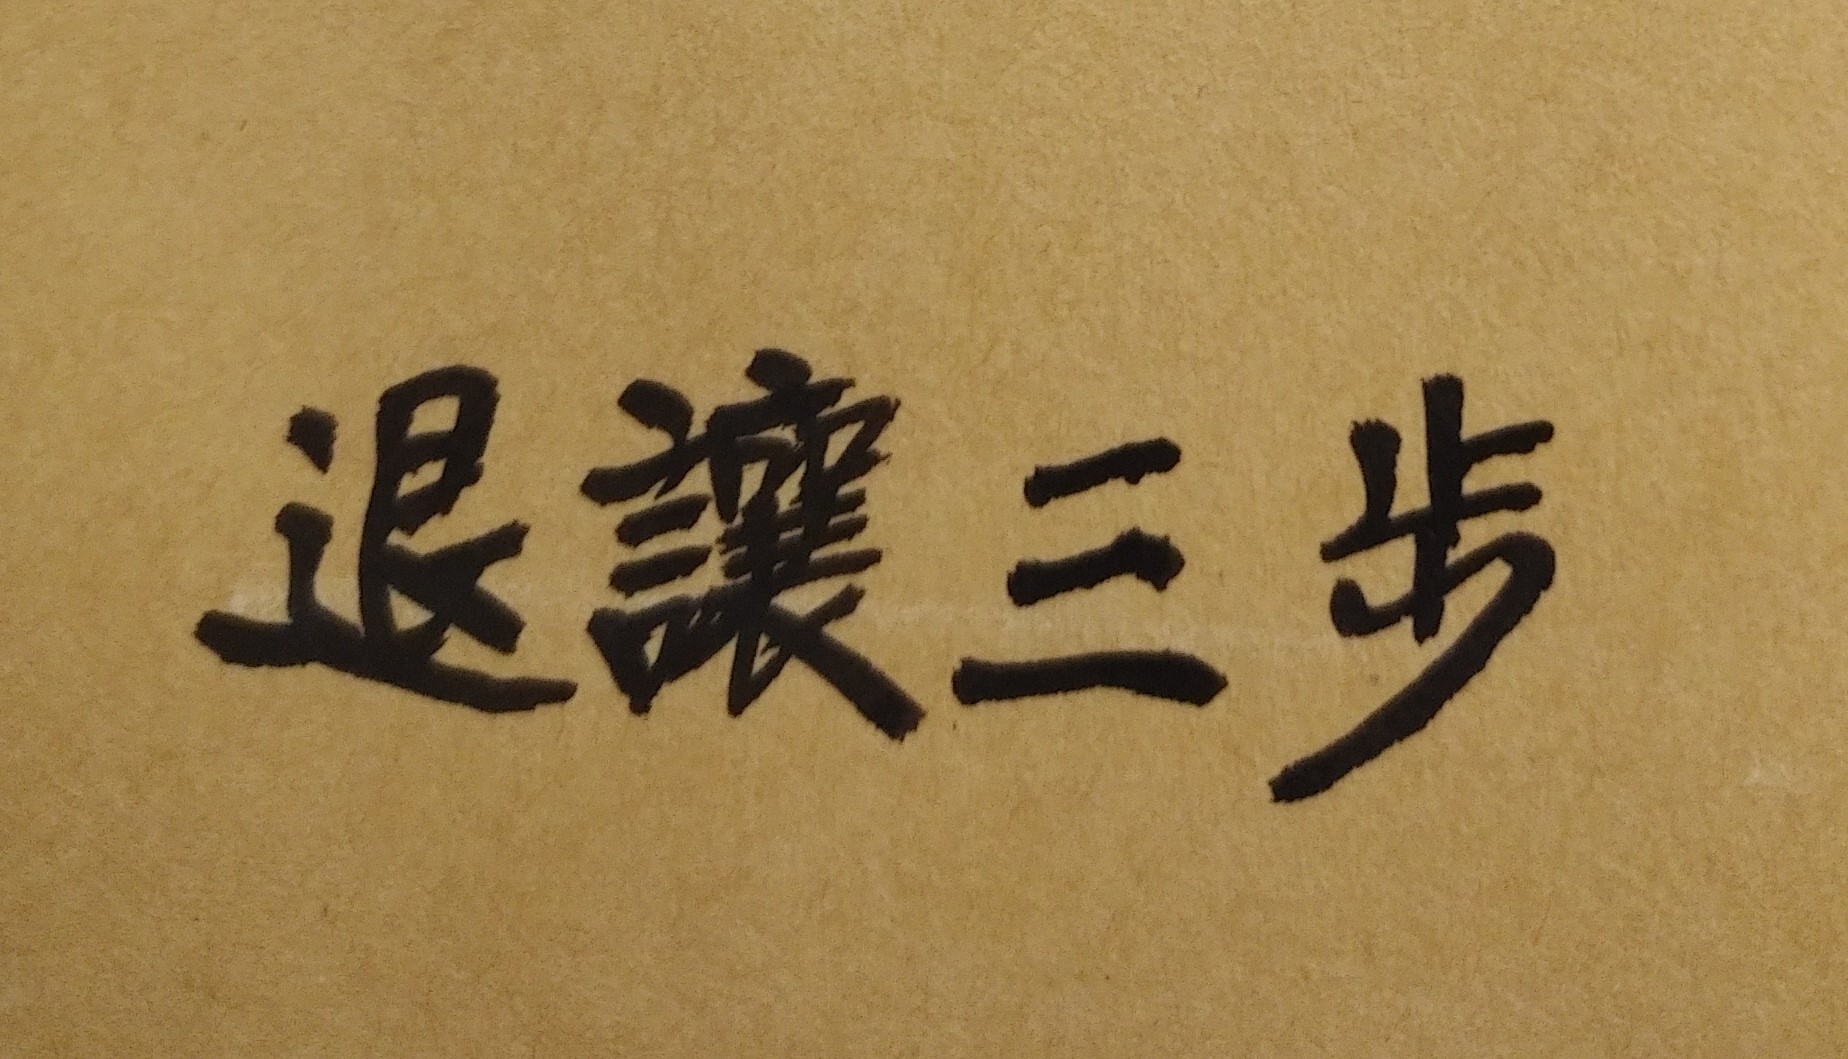 退讓三步